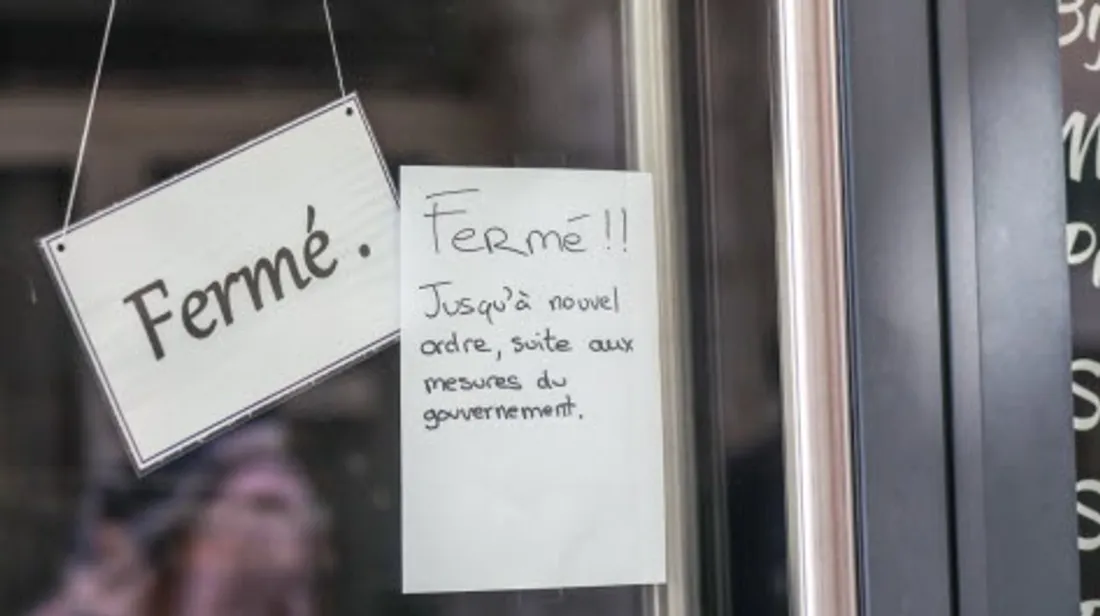 Fermé.
Fermé!!
Jusqu'à nouvel
ordre, suite aux
mesures du
gouvernement.